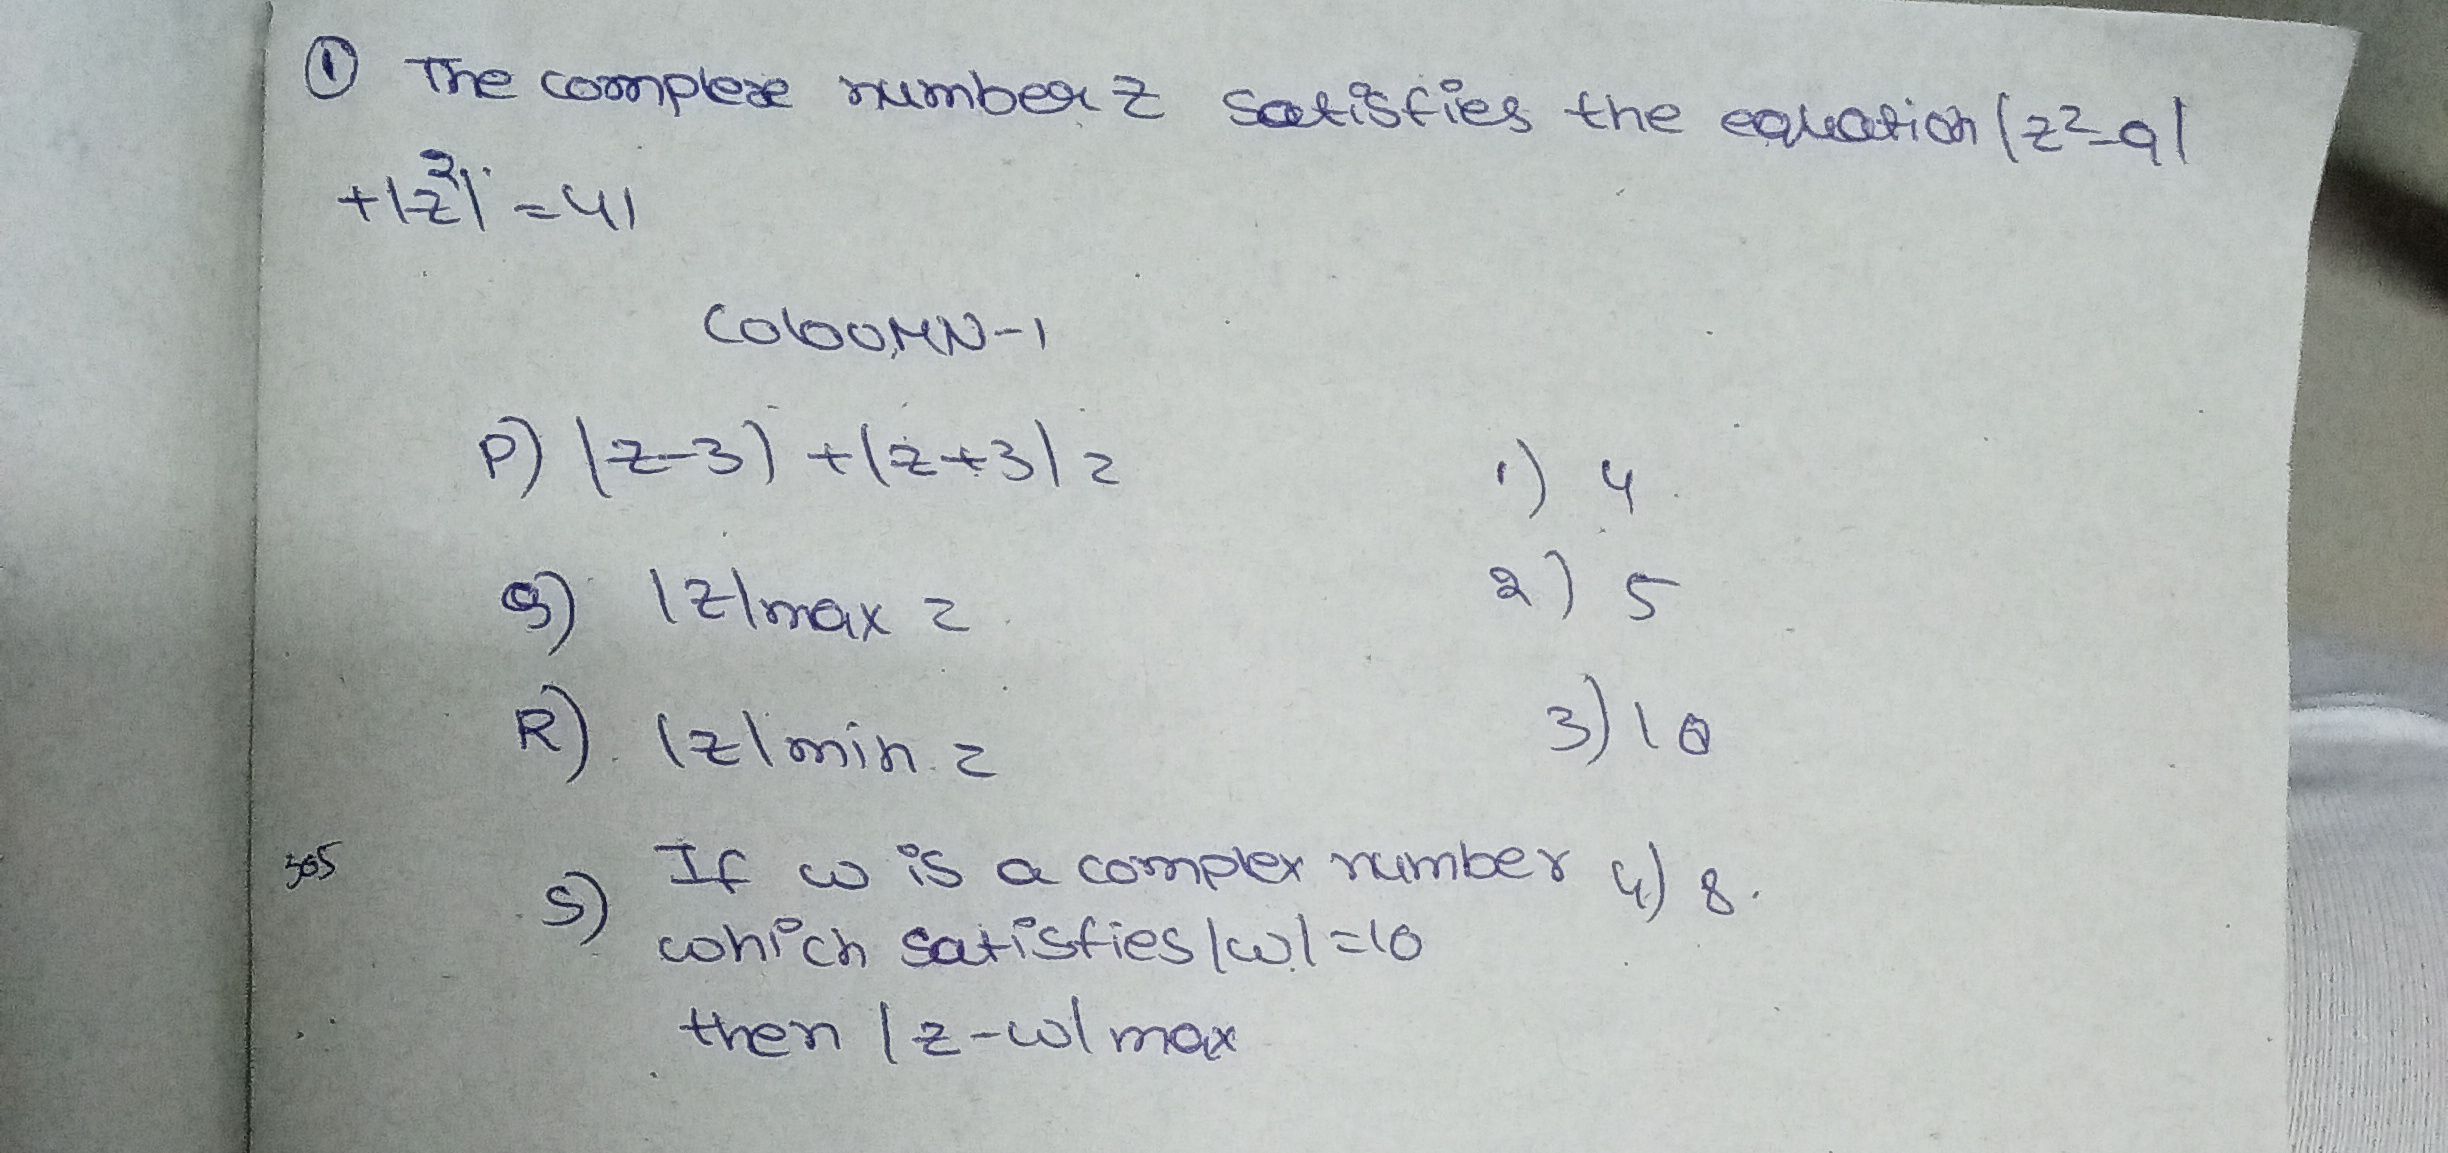 ① The complexe number z satisfies the equation |z²-9|
+|z²| = 41
COLOUMN-1
P) |z-3) +|z+3| =
1) 4
Q) |z|max =
2) 5
R) |z|min =
3) 10
305
S) If ω is a complex number
4) 8.
which satisfies |ω| = 10
then |z-ω| max